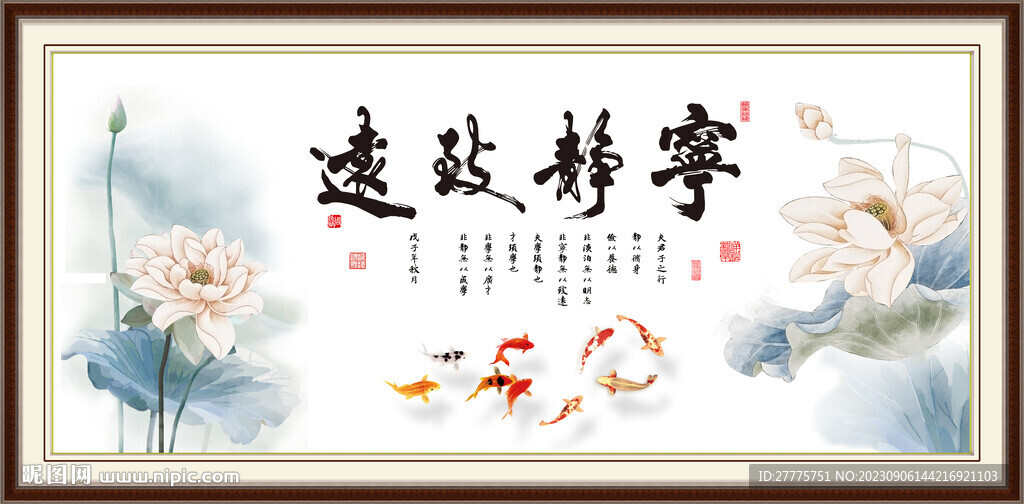 寧靜致遠
夫君子之行
靜以修身
儉以養德
非淡泊無以明志
非寧靜無以致遠
夫學須靜也
才須學也
非學無以廣才
非靜無以成學
戊子年秋月
昵图网 www.nipic.com
ID:27775751 NO:20230906144216921103